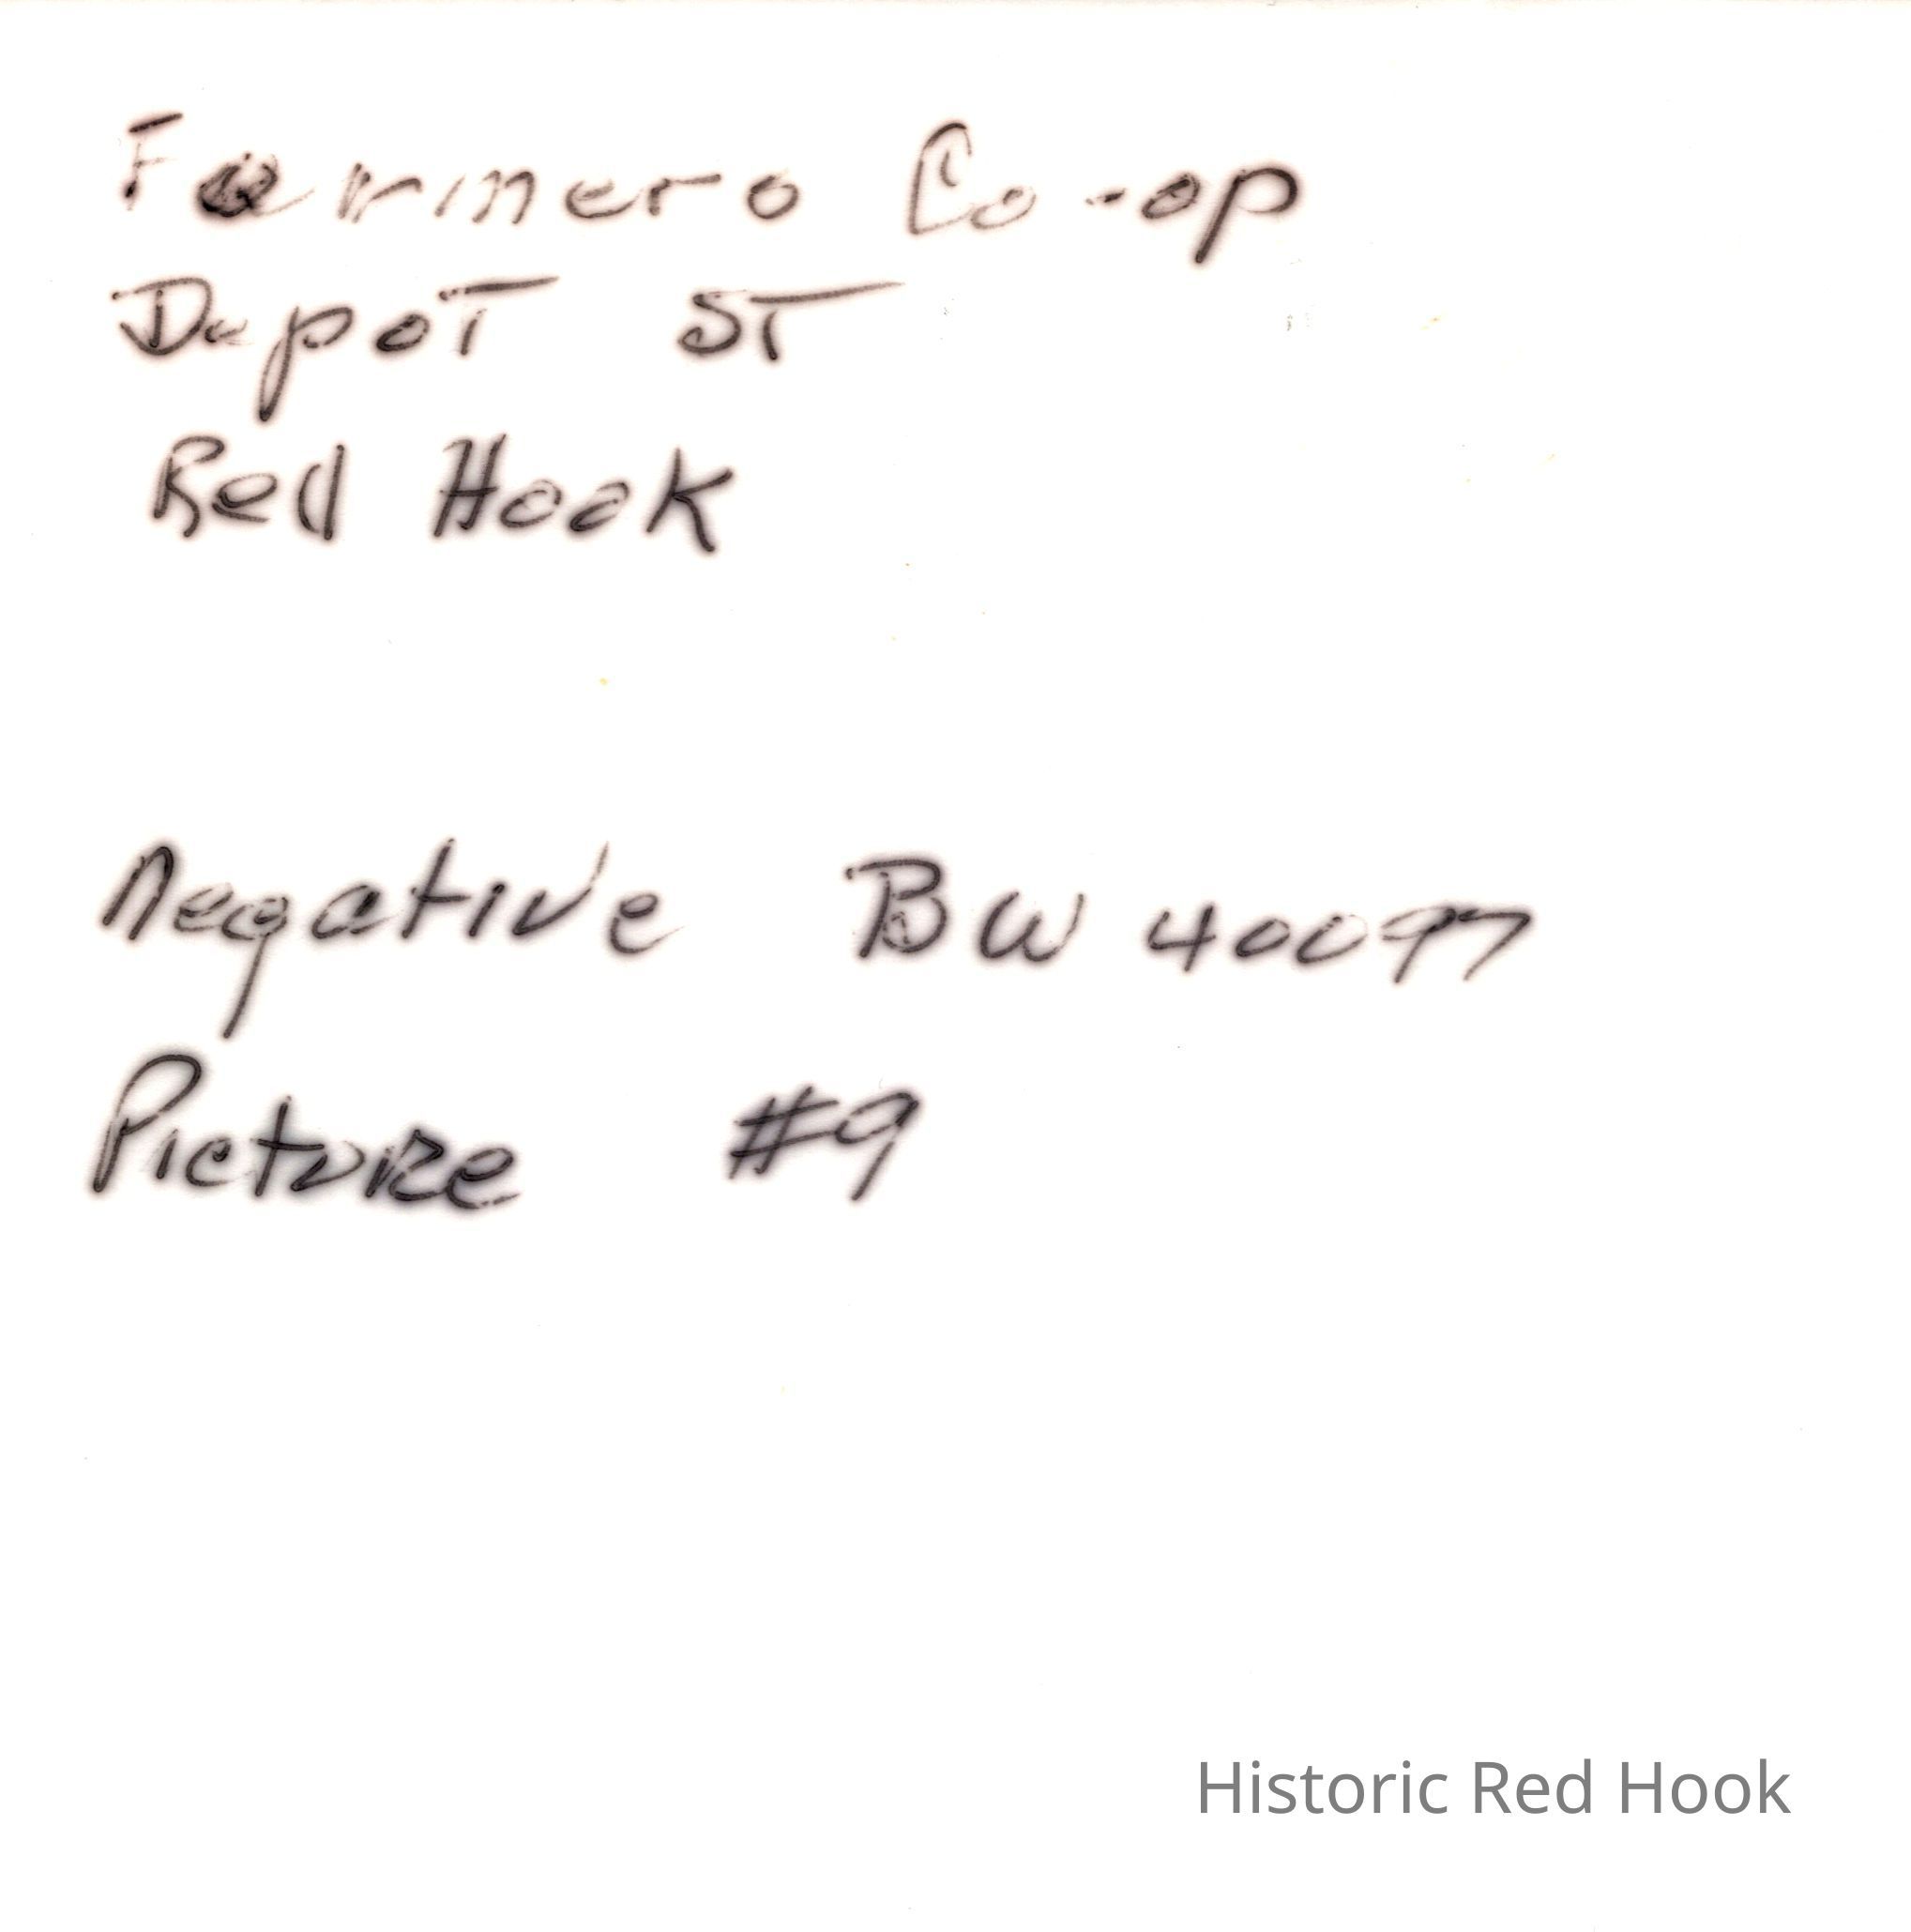 Farmers Co-op
Depot ST
Red Hook
Negative BW 40097
Picture #9
Historic Red Hook